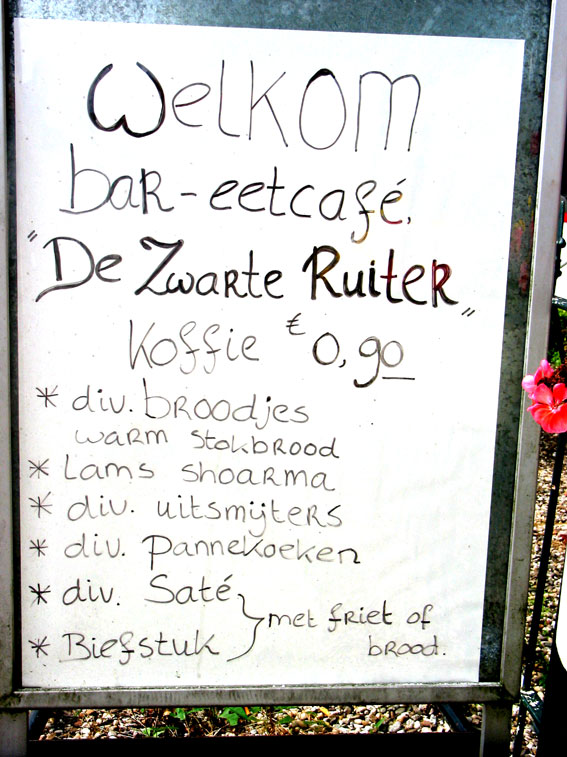 WelKOM
baR-eetcafé,
"De Zwarte Ruiter"
Koffie € 0,90
* div. broodjes
warm stokbrood
* Lams shoarma
* div. uitsmijters
* div. Pannekoeken
* div. Saté
* Biefstuk
met friet of
brood.